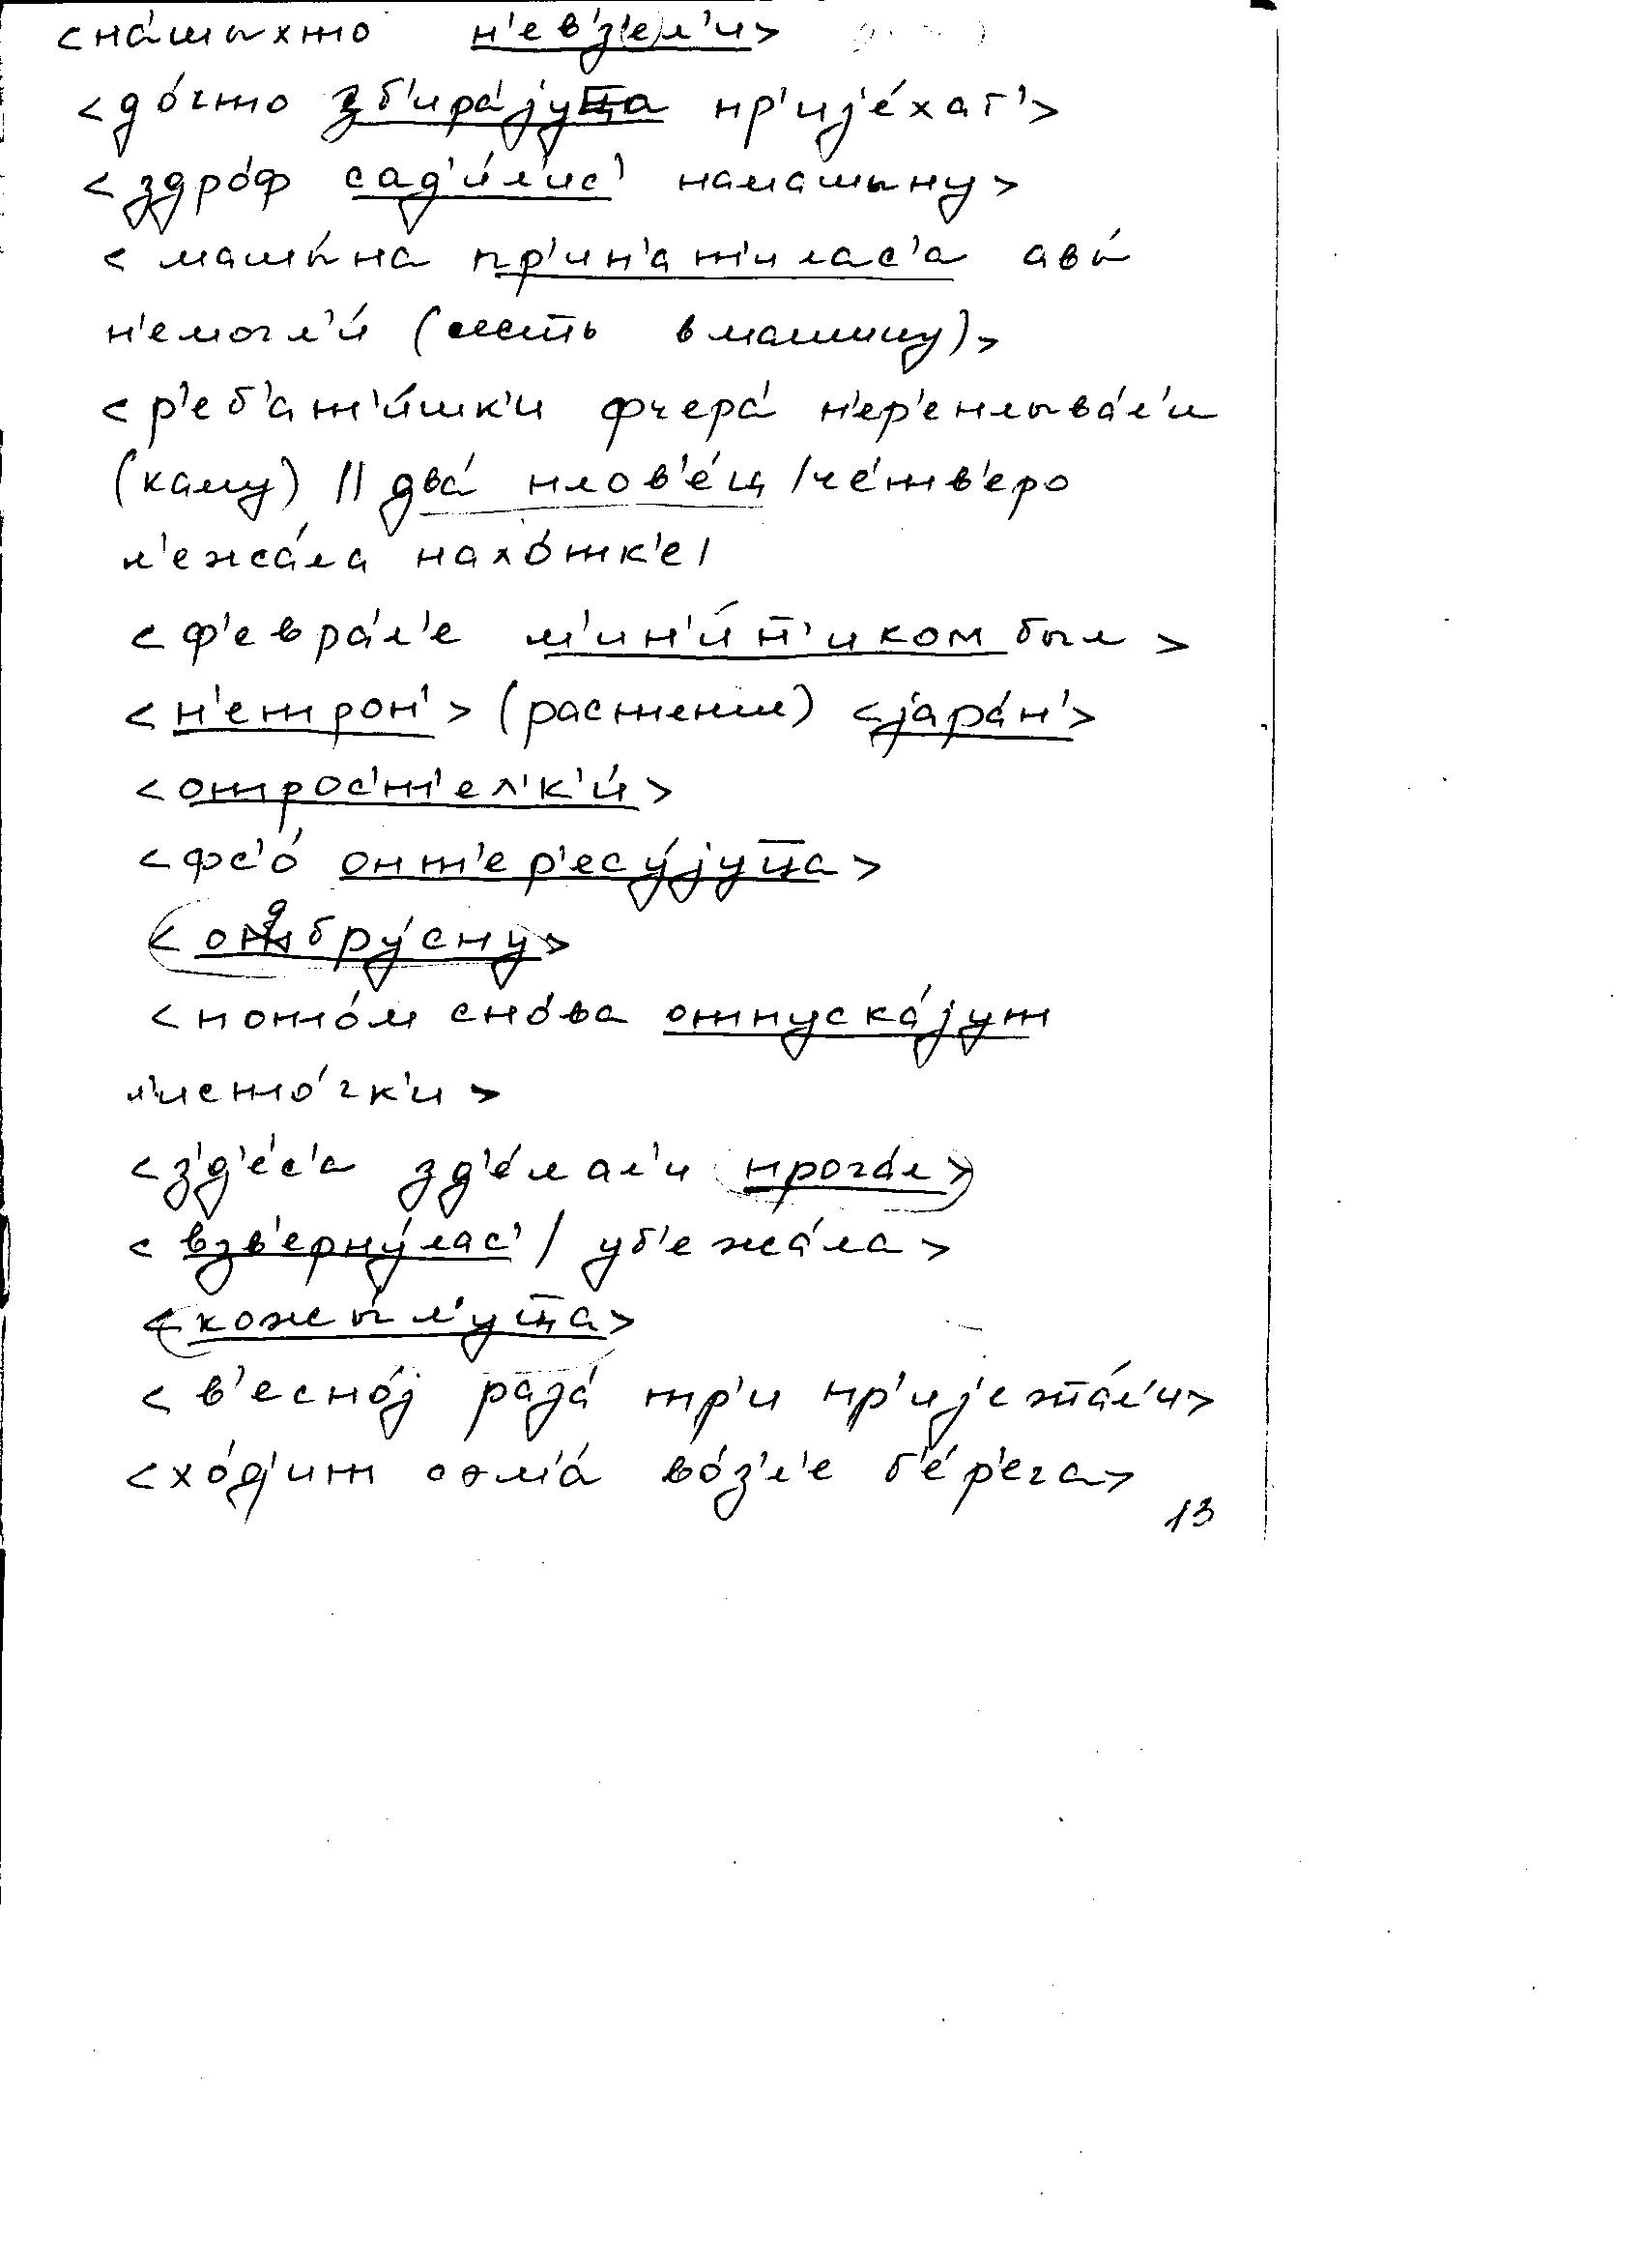 <на́шыхто н'евз'(е)л'и>
<до́что зб'ира́jуц̅а пр'иjе́хат'>
<здро́ф сад'и́л'ис' намашыну>
<машы́на пр'ин'ат'илас'а авы́
н'емогл'и́ (сесть в машину)>
<р'еб'ат'и́шк'и фчера́ п'ер'еплыва́л'и
(каму) || два́ плов'е́ц /че́тв'еро
л'ежа́ла нахо́тк'е/
<ф'евра́л'е м'ин'и́т'иком был>
<п'етрон'> (растение) <jара́н'>
<отрос'т'ел'к'и́>
<фс'о́ онт'ер'есу́jуц̅а>
<одбру́сну>
<пото́м сно́ва отпуска́jут
л'исто́чк'и>
<з'д'е́с'а зд'е́лал'и прога́л>
<взв'ерну́лас' / уб'ежа́ла>
<кожы́л'уц̅а>
<в'есно́j раза́ тр'и пр'иjеж̅а́л'и>
<хо́д'ит во́з'л'е б'е́р'ега>
13